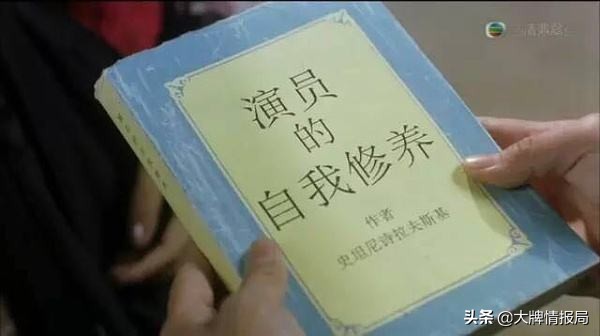 演员
的
自我修养
作者
史坦尼诗拉夫斯基
头条 @大牌情报局